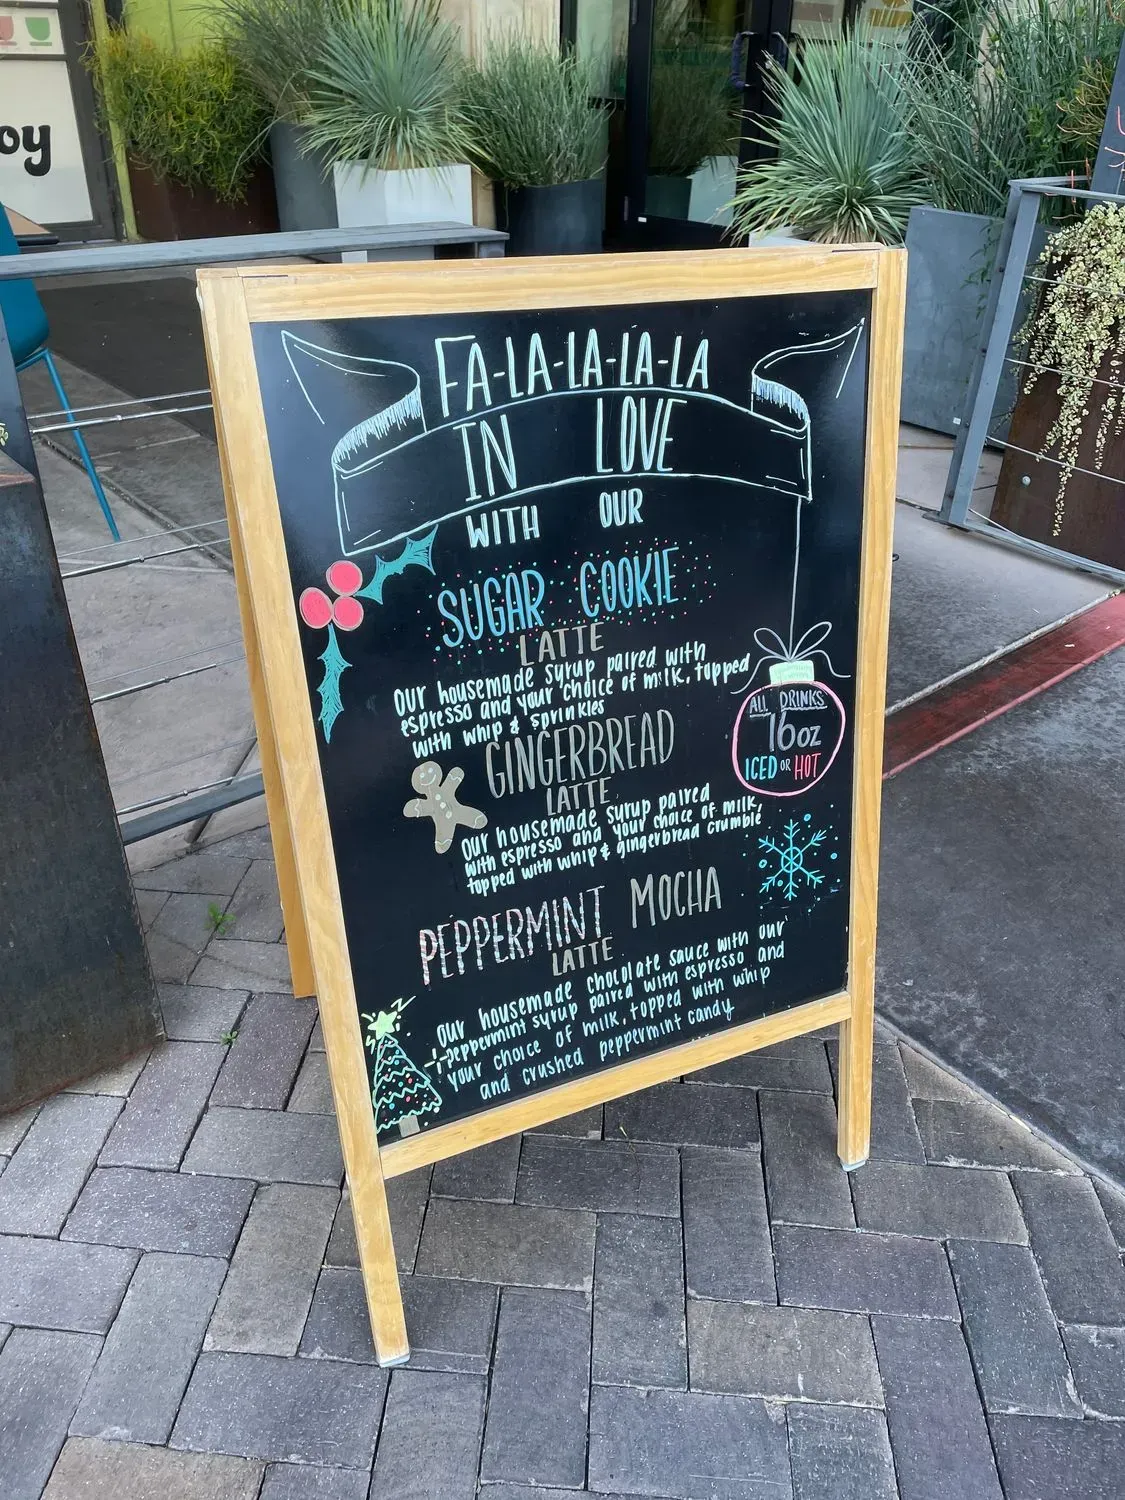 oy
FA-LA-LA-LA-LA
IN LOVE
WITH OUR
SUGAR COOKIE
LATTE
our housemade syrup paired with
espresso and your choice of milk, topped
with whip & sprinkles
GINGERBREAD
LATTE
our housemade syrup paired
with espresso and your choice of milk,
topped with whip & gingerbread crumble
ALL DRINKS
16oz
ICED OR HOT
PEPPERMINT MOCHA
LATTE
our housemade chocolate sauce with our
peppermint syrup paired with espresso and
your choice of milk, topped with whip
and crushed peppermint candy